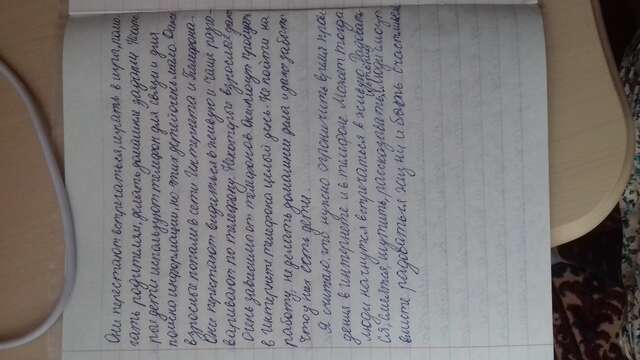 Они перестают встречаться, играть в игры, помо-
гать родителям, делать домашние задания. Некото-
рые дети используют телефон для связи и для
поиска информации, но этих детей очень мало. Даже
взрослые попали в сети Интернета и Телефона.
Они перестают видеться в живую и чаще разго-
варивают по телефону. Некоторые взрослые даже
очень зависимы от телефонов. Они могут проводить
в Интернете телефона целый день. Не пойти на
работу, не делать домашние дела и даже забыть
что у них есть дети.
Я считаю, что нужно ограничить время прове-
дения в интернете и в телефоне. Может тогда
люди начнутся встречаться в живую. Радовать-
ся, смеятся, шутить, рассказывать истории. Люди смогут
вместе радоваться жизни и быть счастливее